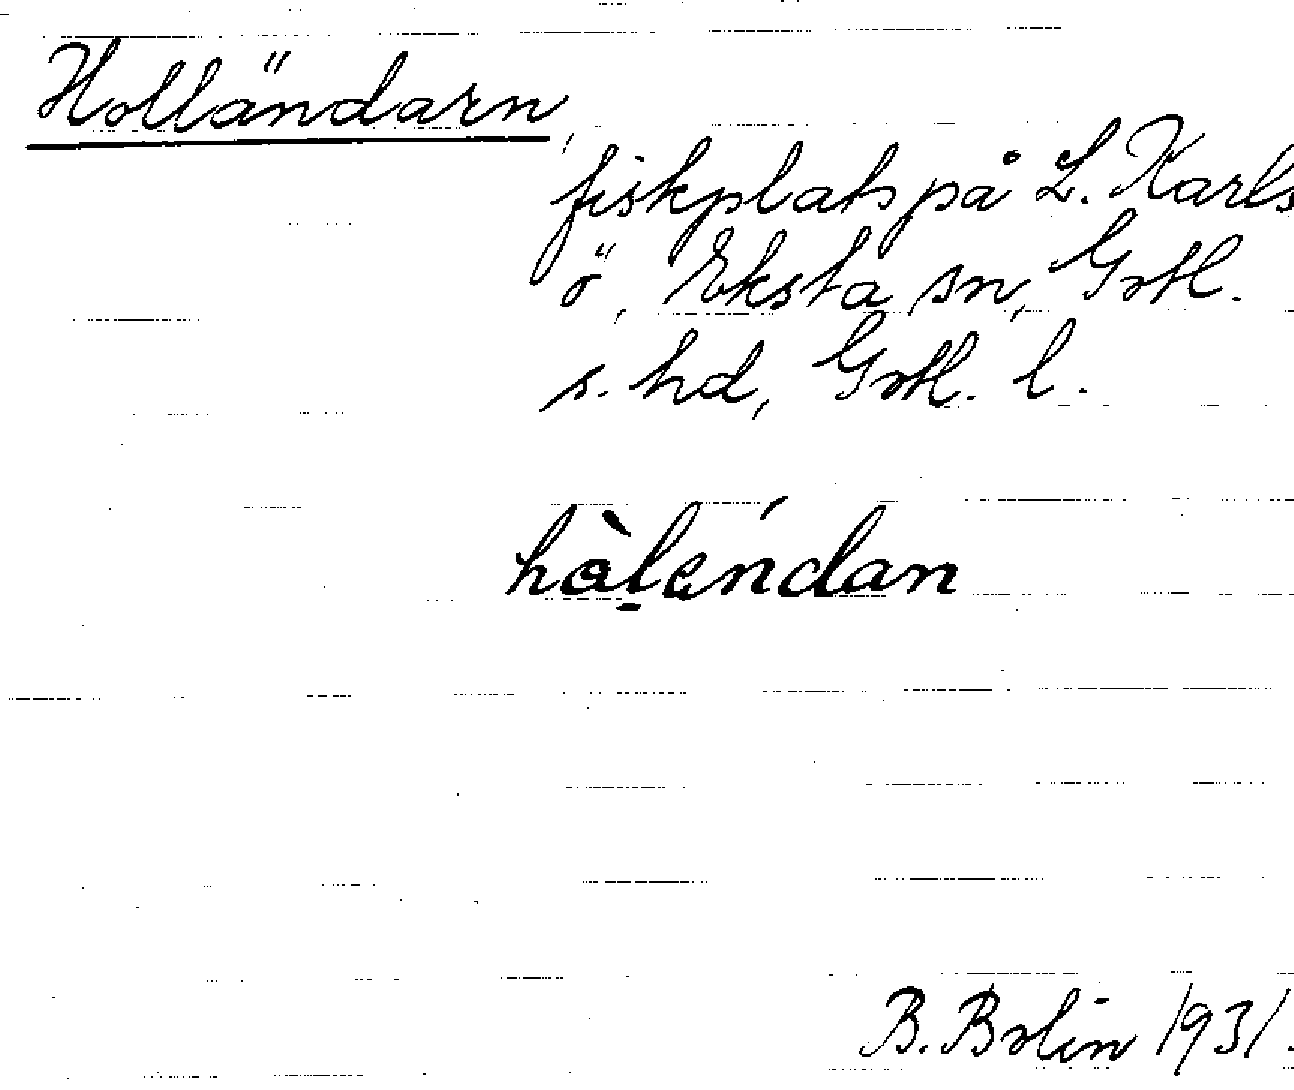 Holländarn,
fiskplats på L. Karls
ö, Eksta sn, Gotl.
s. hd, Gotl. l.
hòḷéndan
B. Bolin 1931.